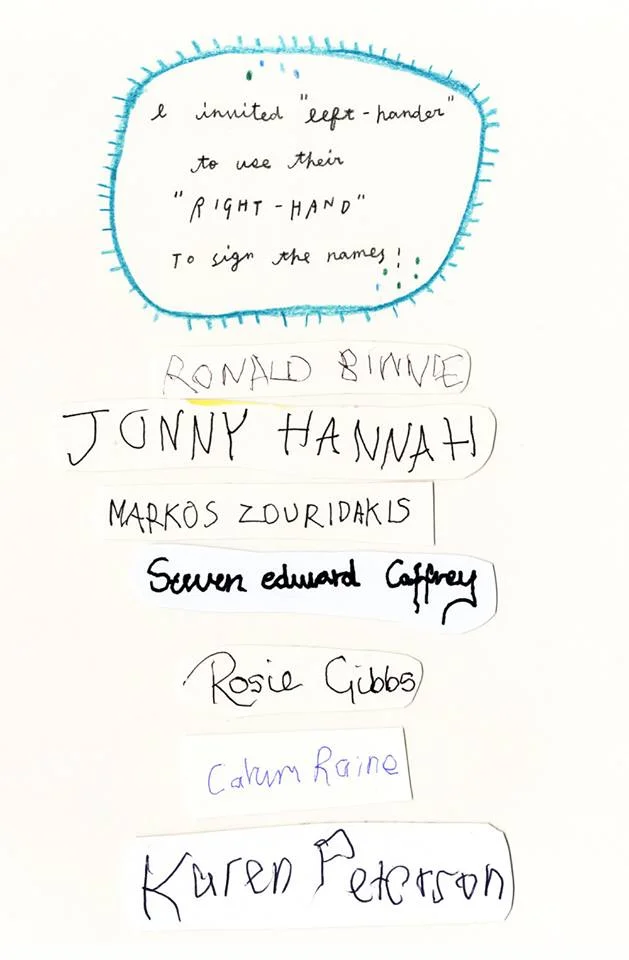 I invited "left-hander"
to use their
"RIGHT-HAND"
To sign the names!
RONALD BINNIE
JONNY HANNAH
MARKOS ZOURIDAKIS
Steven edward Caffrey
Rosie Gibbs
Calum Raine
Karen Peterson